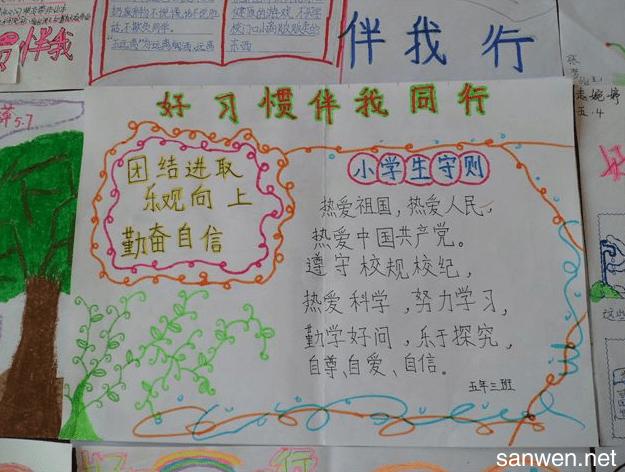 伴我
伴我行
5.7
五.4
好习惯伴我同行
团结进取
乐观向上
勤奋自信
小学生守则
热爱祖国,热爱人民,
热爱中国共产党。
遵守校规校纪,
热爱科学,努力学习,
勤学好问,乐于探究,
自尊、自爱、自信。
五年三班
行
sanwen.net